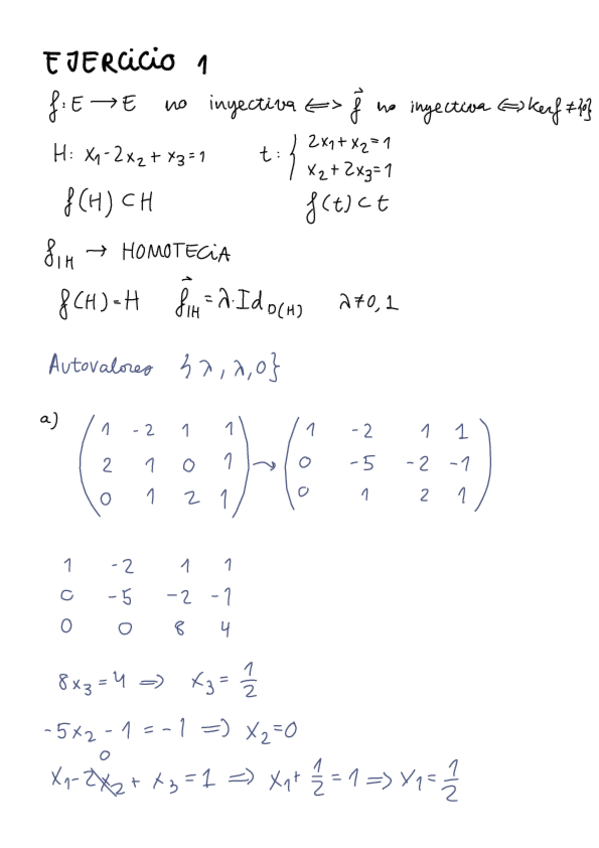 EJERCICIO 1
f: E → E no inyectiva ⟺ f⃗ no inyectiva ⟺ ker f ≠ {0}
H: x₁ - 2x₂ + x₃ = 1 t: { 2x₁ + x₂ = 1
x₂ + 2x₃ = 1
f(H) ⊂ H f(t) ⊂ t
f|H → HOMOTECIA
f(H) = H f⃗|H = λ·Id D(H) λ ≠ 0, 1
Autovalores {λ, λ, 0}
a) ( 1 -2 1 1 ) ( 1 -2 1 1 )
( 2 1 0 1 ) → ( 0 -5 -2 -1 )
( 0 1 2 1 ) ( 0 1 2 1 )
1 -2 1 1
0 -5 -2 -1
0 0 8 4
8x₃ = 4 ⟹ x₃ = 1/2
-5x₂ - 1 = -1 ⟹ x₂ = 0
0
x₁ - 2x₂ + x₃ = 1 ⟹ x₁ + 1/2 = 1 ⟹ x₁ = 1/2